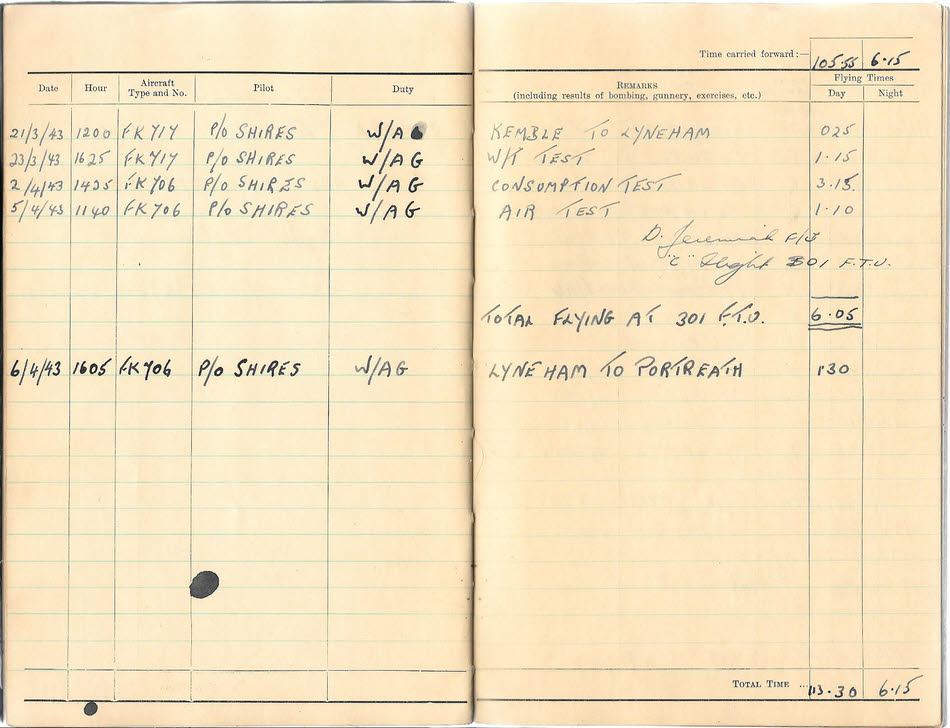 Time carried forward:— 105·55 6·15
Date Hour Aircraft Type and No. Pilot Duty REMARKS (including results of bombing, gunnery, exercises, etc.) Flying Times Day Night
21/3/43 1200 FK 717 P/O SHIRES W/AG KEMBLE TO LYNEHAM 025
23/3/43 1625 FK 717 P/O SHIRES W/AG W/T TEST 1·15
2/4/43 1425 FK 706 P/O SHIRES W/AG CONSUMPTION TEST 3·15
5/4/43 1140 FK 706 P/O SHIRES W/AG AIR TEST 1·10
D. Jeremiah
"C" Flight 301 F.T.U.
TOTAL FLYING AT 301 F.T.U. 6·05
6/4/43 1605 FK 706 P/O SHIRES W/AG LYNEHAM TO PORTREATH 1·30
TOTAL TIME ... 113·30 6·15